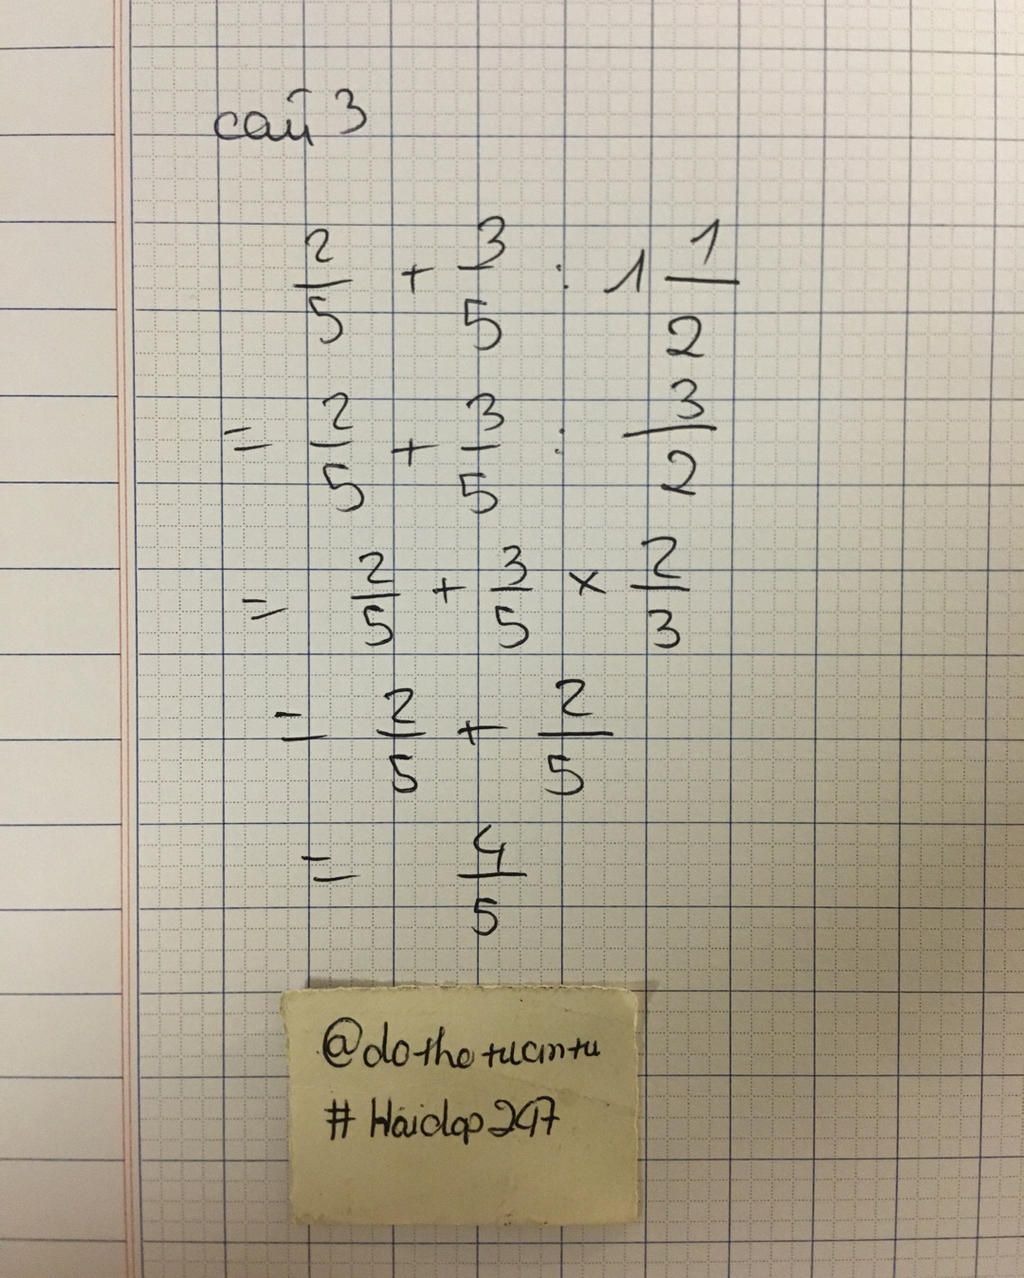 caij 3
2/5 + 3/5 : 1 1/2
= 2/5 + 3/5 : 3/2
= 2/5 + 3/5 × 2/3
= 2/5 + 2/5
= 4/5
@dothetuantu
# Hoidap247